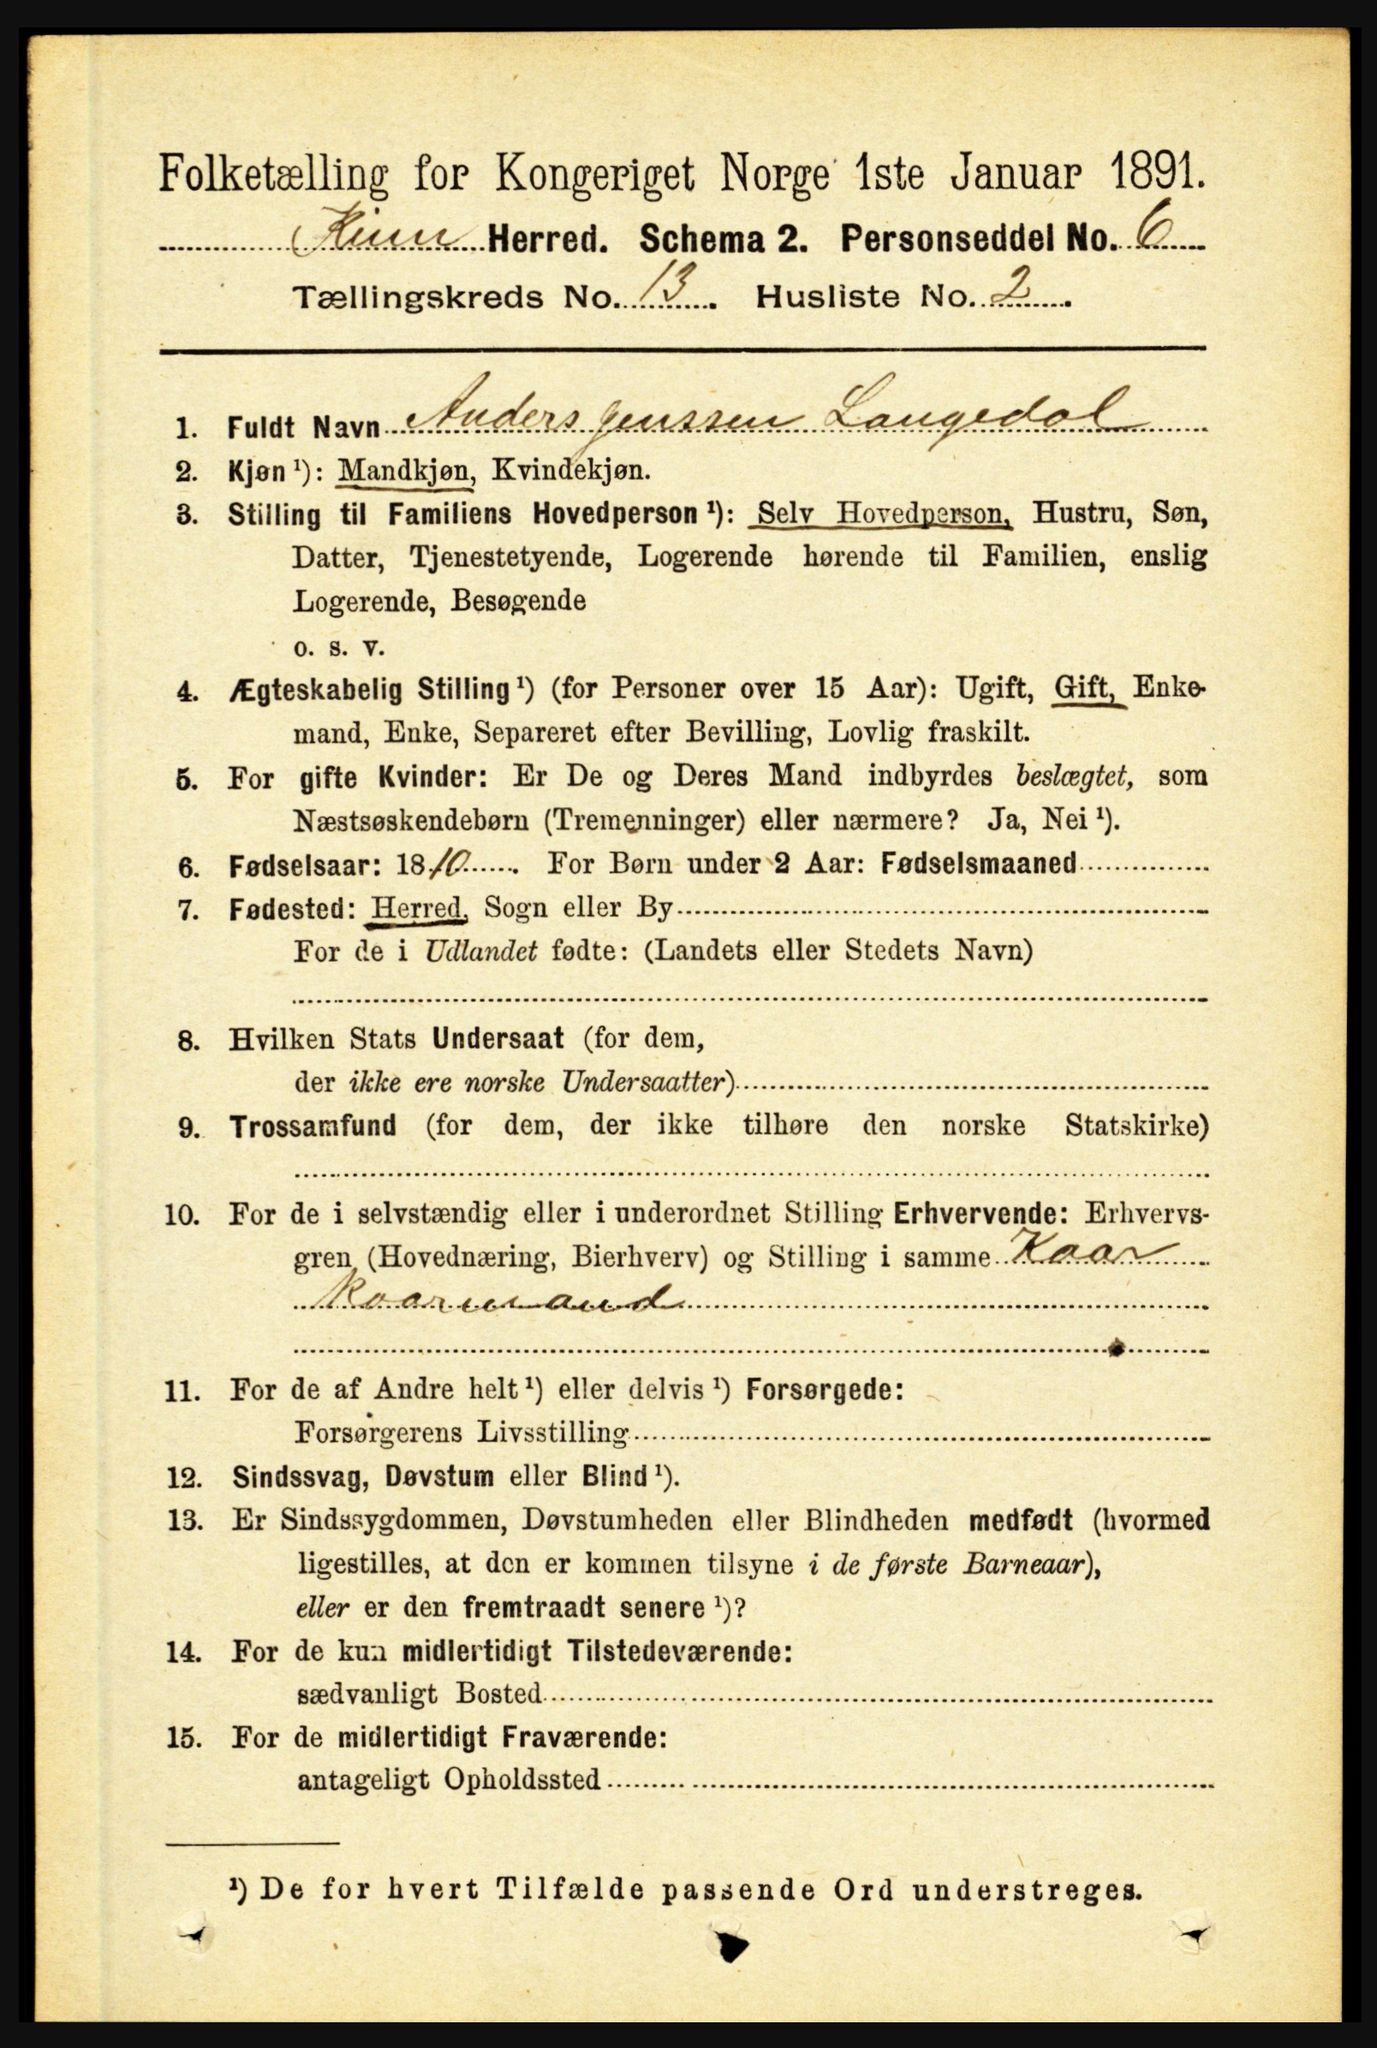 Folketælling for Kongeriget Norge 1ste Januar 1891.
Kinn Herred. Schema 2. Personseddel No. 6
Tællingskreds No. 13. Husliste No. 2.
1. Fuldt Navn Anders Jenssen Langedal
2. Kjøn ¹): Mandkjøn, Kvindekjøn.
3. Stilling til Familiens Hovedperson ¹): Selv Hovedperson, Hustru, Søn,
Datter, Tjenestetyende, Logerende hørende til Familien, enslig
Logerende, Besøgende
o. s. v.
4. Ægteskabelig Stilling ¹) (for Personer over 15 Aar): Ugift, Gift, Enke-
mand, Enke, Separeret efter Bevilling, Lovlig fraskilt.
5. For gifte Kvinder: Er De og Deres Mand indbyrdes beslægtet, som
Næstsøskendebørn (Tremenninger) eller nærmere? Ja, Nei ¹).
6. Fødselsaar: 1810. For Børn under 2 Aar: Fødselsmaaned
7. Fødested: Herred, Sogn eller By
For de i Udlandet fødte: (Landets eller Stedets Navn)
8. Hvilken Stats Undersaat (for dem,
der ikke ere norske Undersaatter)
9. Trossamfund (for dem, der ikke tilhøre den norske Statskirke)
10. For de i selvstændig eller i underordnet Stilling Erhvervende: Erhvervs-
gren (Hovednæring, Bierhverv) og Stilling i samme Kaar
Kaarmand
11. For de af Andre helt ¹) eller delvis ¹) Forsørgede:
Forsørgerens Livsstilling
12. Sindssvag, Døvstum eller Blind ¹).
13. Er Sindssygdommen, Døvstumheden eller Blindheden medfødt (hvormed
ligestilles, at den er kommen tilsyne i de første Barneaar),
eller er den fremtraadt senere ¹)?
14. For de kun midlertidigt Tilstedeværende:
sædvanligt Bosted
15. For de midlertidigt Fraværende:
antageligt Opholdssted
¹) De for hvert Tilfælde passende Ord understreges.